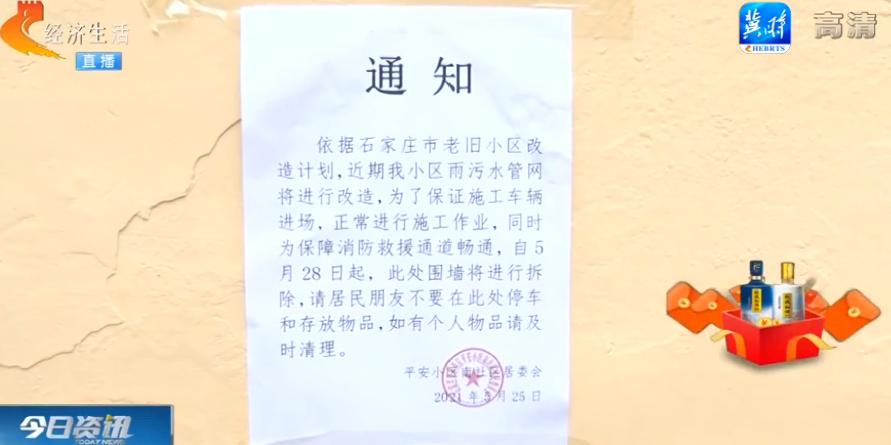 经济生活
直播
冀时
HEBRTS
高清
通知
依据石家庄市老旧小区改
造计划,近期我小区雨污水管网
将进行改造,为了保证施工车辆
进场,正常进行施工作业,同时
为保障消防救援通道畅通,自5
月28日起,此处围墙将进行拆
除,请居民朋友不要在此处停车
和存放物品,如有个人物品请及
时清理。
平安小区南社区居委会
2021年5月25日
今日资讯
TODAY NEWS